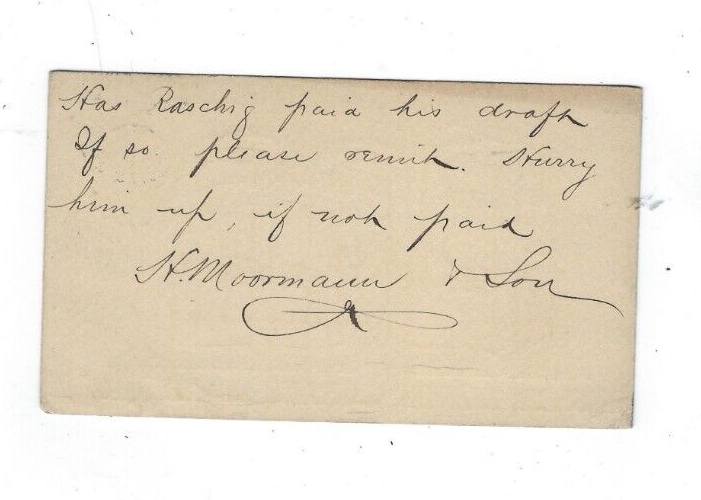 Has Raschig paid his draft
If so please remit. Hurry
him up, if not paid
H. Moormann & Son